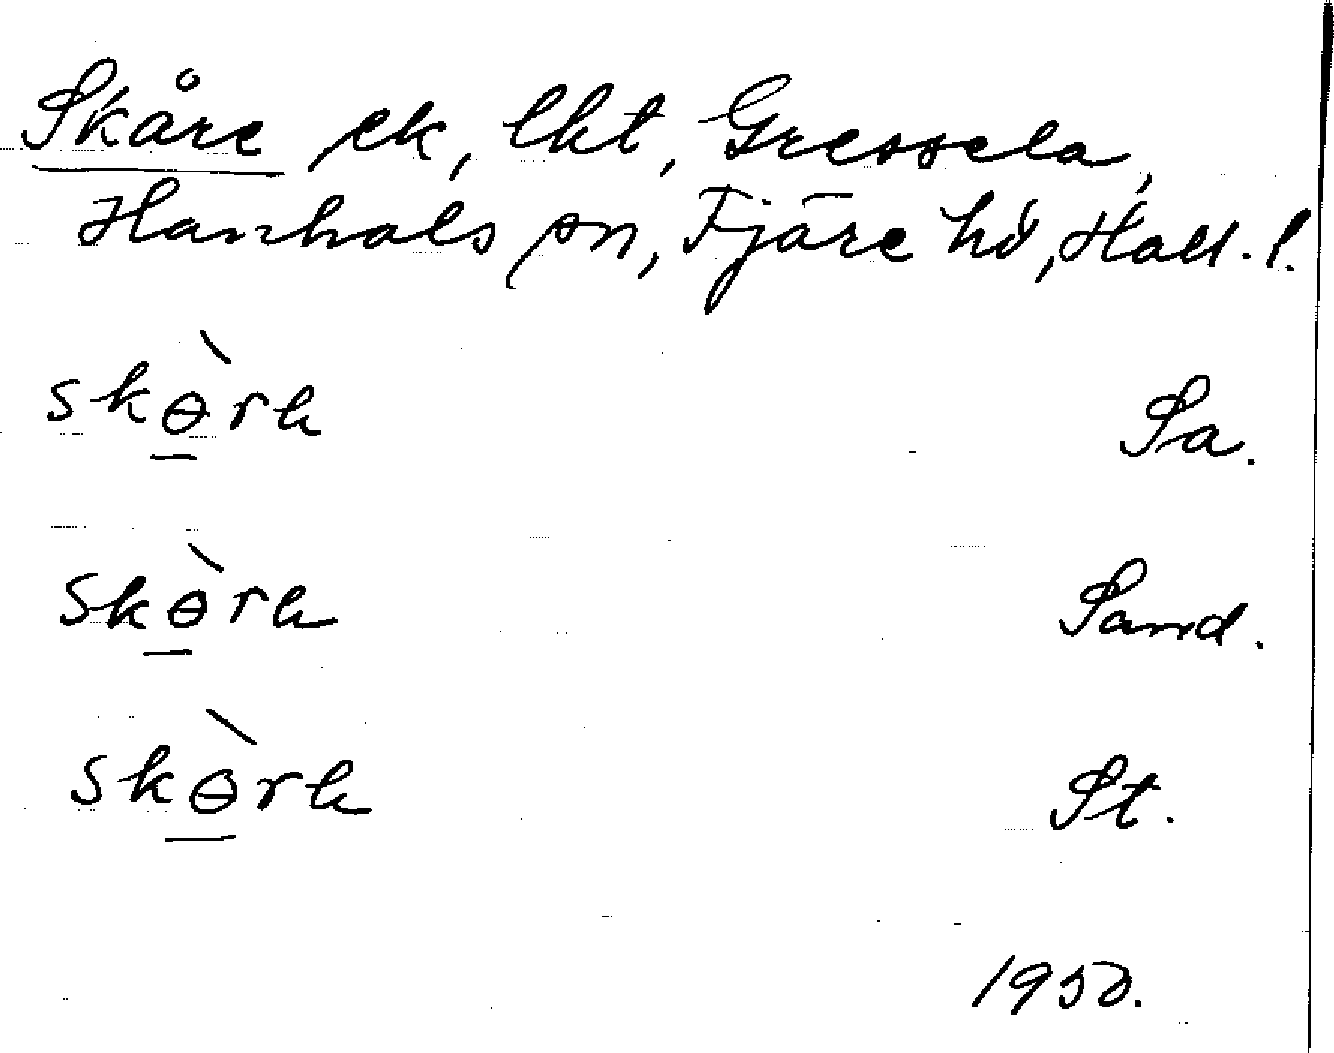 Skåre ek, lht, Gressela,
Hanhals sn, Fjäre hd, Hall. l.
skɵ̀ra Sa.
skɵ̀ra Sand.
skɵ̀ra St.
1950.